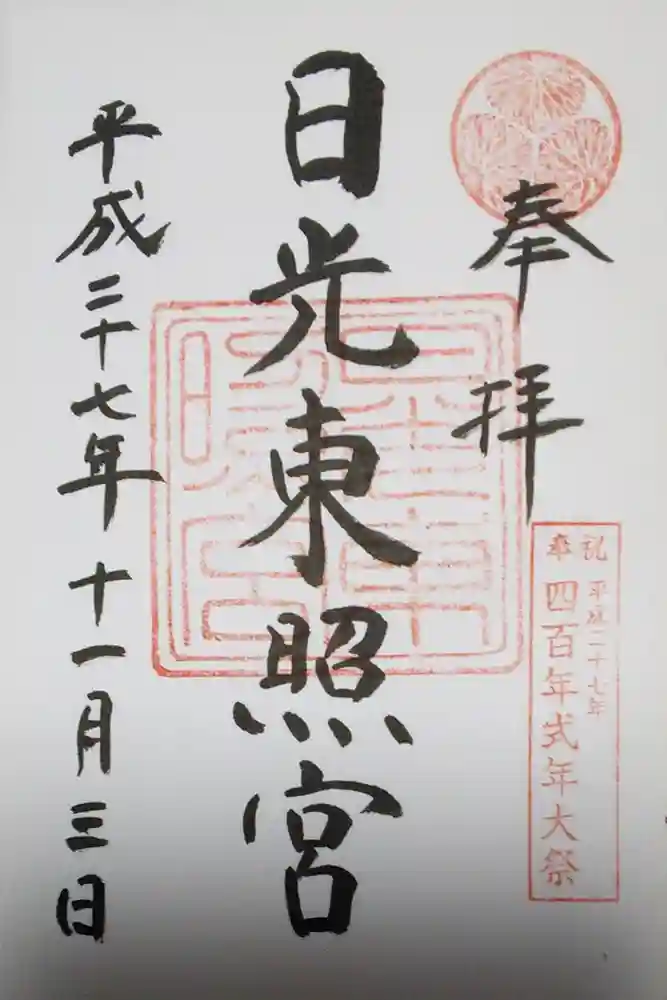 奉拝
祝奉
平成二十七年
四百年式年大祭
日光東照宮
平成二十七年十一月三日